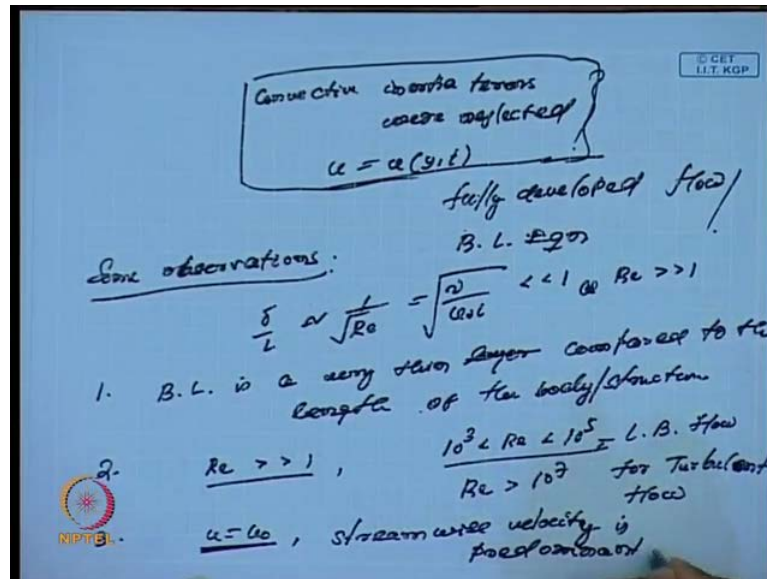 © CET
I.I.T. KGP
Convective inertia terms
were neglected
u = u(y,t)
fully developed flow/
B.L. Eqn
Some observations:
δ/L ~ 1/√Re = √(ν/u₀L) << 1 Re >> 1
1. B.L. is a very thin layer compared to the
length of the body/structure
2. Re >> 1, 10³ < Re < 10⁵ = L.B. flow
Re > 10⁷ for Turbulent
flow
3. u = u₀, streamwise velocity is
predominant
NPTEL